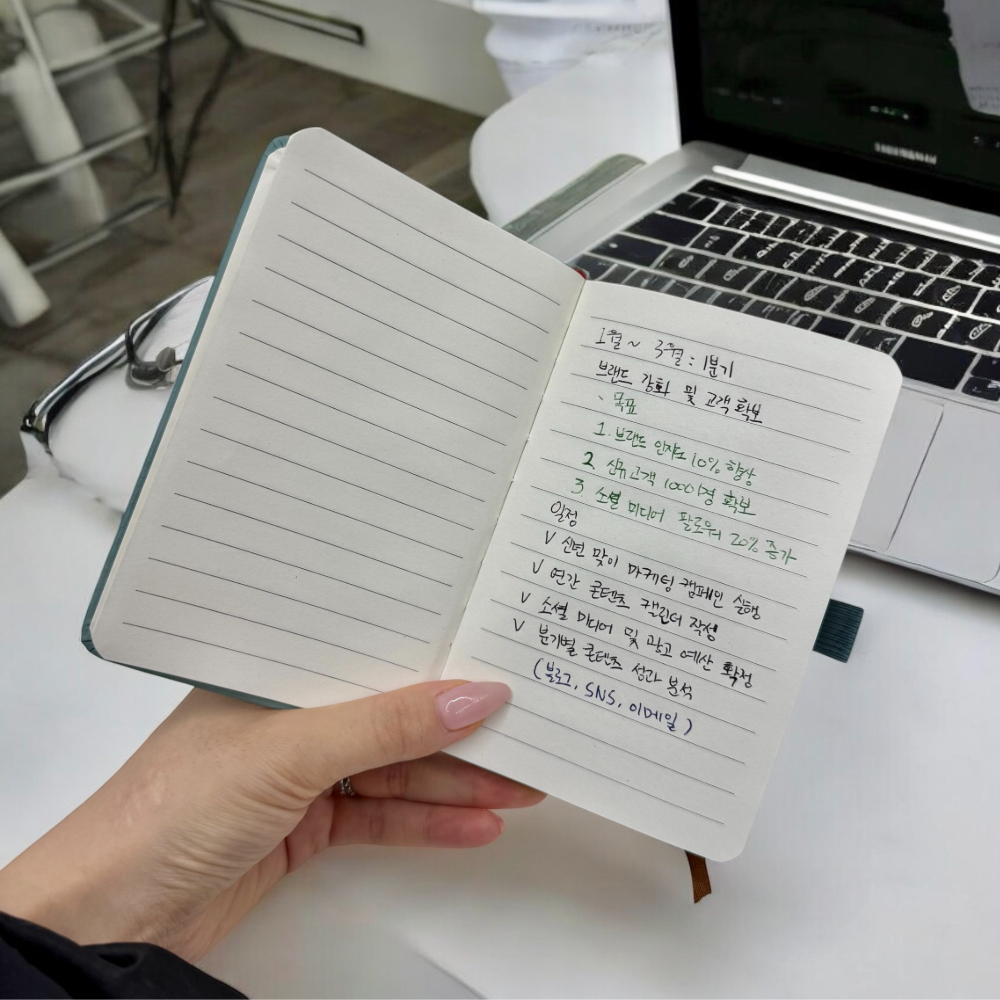 1월 ~ 3월 : 1분기
브랜드 강화 및 고객 확보
· 목표
1. 브랜드 인지도 10% 향상
2. 신규 고객 1000명 확보
3. 소셜 미디어 팔로워 20% 증가
일정
V 신년 맞이 마케팅 캠페인 실행
V 연간 콘텐츠 캘린더 작성
V 소셜 미디어 및 광고 예산 확정
V 분기별 콘텐츠 성과 분석
(블로그, SNS, 이메일)